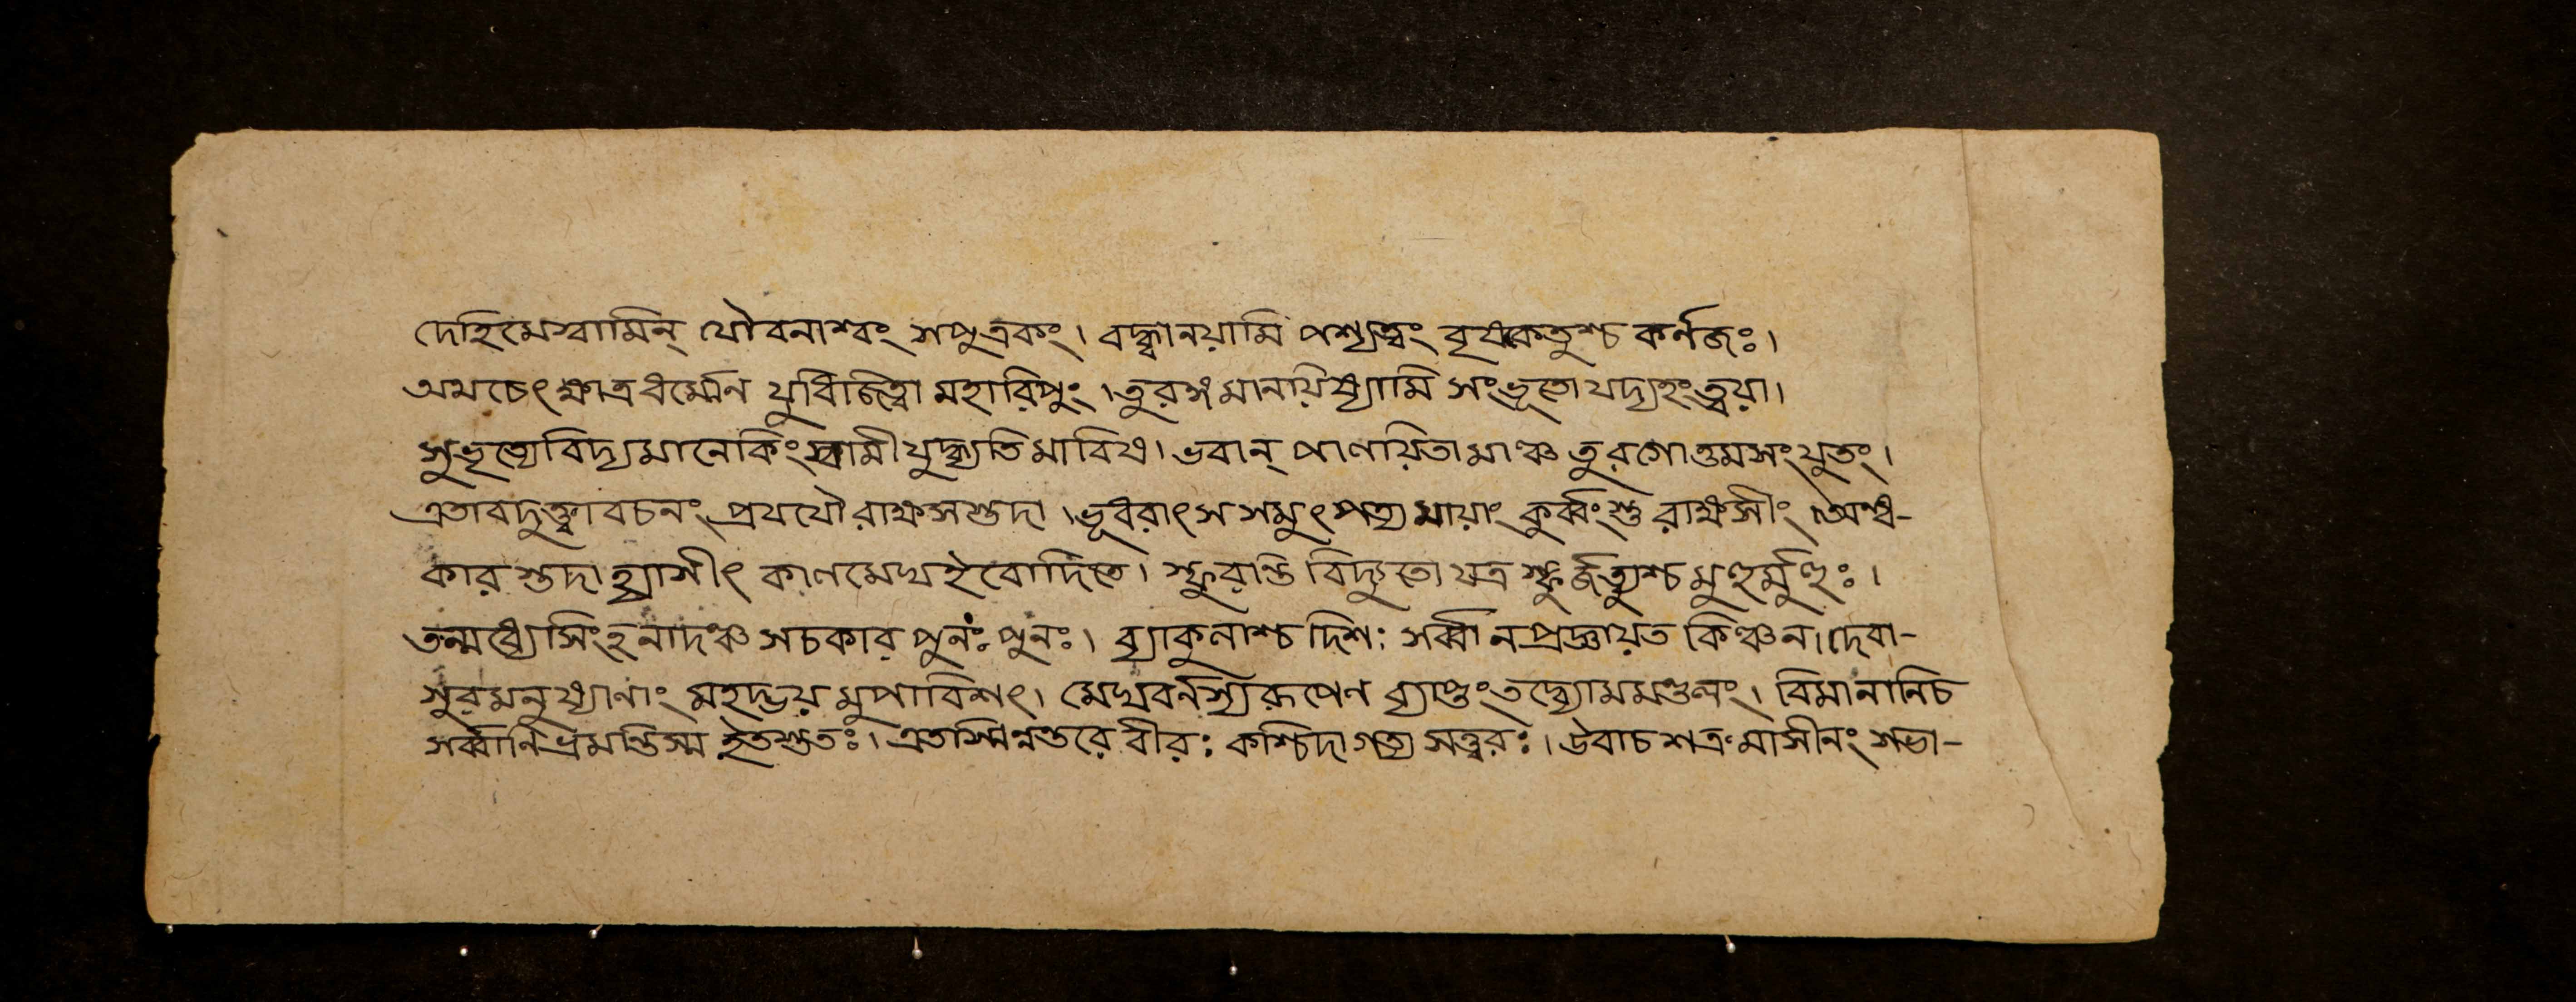 দেহিমেস্বামিন্ যৌবনাশ্বং সপুত্রকং। বদ্ধ্বানয়ামি পশ্যত্বং বৃষকেতুশ্চ কর্নজঃ।
অথচেৎ ক্ষাত্রধর্ম্মেন যুধিজিত্বা মহারিপুং। তুরঙ্গমানয়িষ্যামি সংভূতোযদ্যহংত্বয়া।
সুভৃত্যেবিদ্যমানেকিংস্বামীযুদ্ধ্যতিমাবিথ। ভবান্ পালয়িতামাঞ্চ তুরগোত্তমসংযুতং।
এতাবদুক্ত্বাবচনং প্রযযৌ রাক্ষসস্তদা। ভূধরাৎ স সমুৎপত্য মায়াং কুর্ব্বংস্তু রাক্ষসীং। অন্ধ-
কার স্তদা হ্যাসীৎ কালমেঘইবোদিতে। স্ফুরন্তি বিদ্যুতো যত্র স্ফুর্জত্যুশ্চ মুহুর্মুহুঃ।
তন্মধ্যেসিংহনাদঞ্চ সচকার পুনঃ পুনঃ। ব্যাকুলাশ্চ দিশঃ সর্ব্বা নপ্রজ্ঞায়ত কিঞ্চন। দেবা-
সুরমনুষ্যানাং মহদ্ভয় মুপাবিশৎ। মেঘবর্নস্যরূপেণ ব্যাপ্তং তদ্ব্যোমমণ্ডলং। বিমানানিচ
সর্ব্বানিভ্রমন্তিস্ম ইতস্ততঃ। এতস্মিন্নন্তরে বীরঃ কশ্চিদাগত্য সত্বরঃ। উবাচ শত্রুমাসীনং সভা-